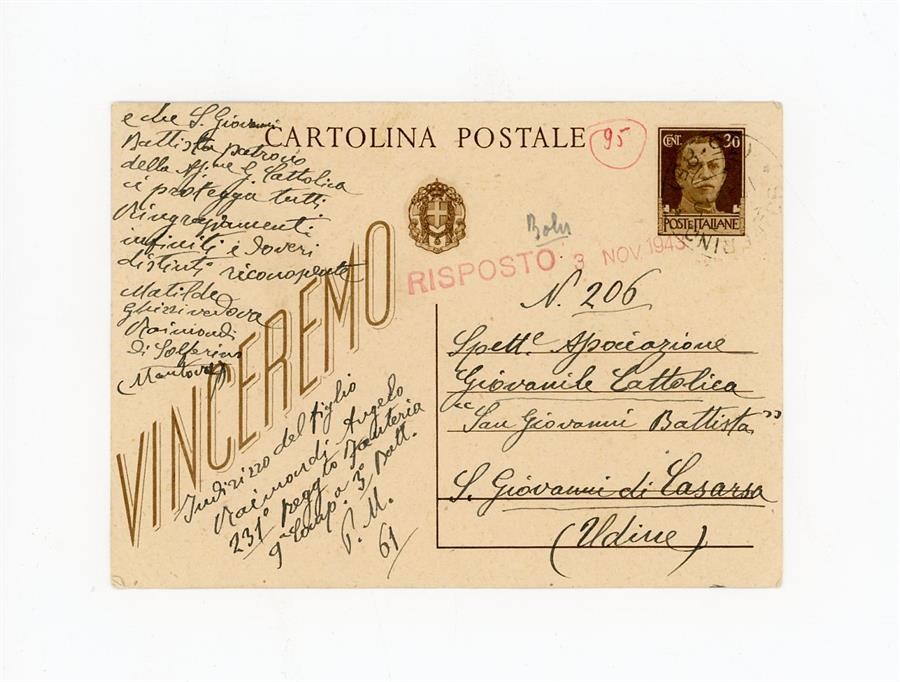 e che S. Giovanni
Battista patrono
della Assne G. Cattolica
ci protegga tutti
Ringraziamenti
infiniti e doveri
distinti riconoscente
Matilde
Ghizzi vedova
Raimondi
di Solferino
(Mantova)
CARTOLINA POSTALE
95
CENT. 30
POSTE ITALIANE
RISPOSTO 3 NOV. 1943
VINCEREMO
N. 206
Spett.e Associazione
Giovanile Cattolica
"San Giovanni Battista"
S. Giovanni di Casarsa
(Udine)
Indirizzo del figlio
Raimondi Angelo
231° Regg.to Fanteria
9a Comp.a 3° Batt.
P. M.
61